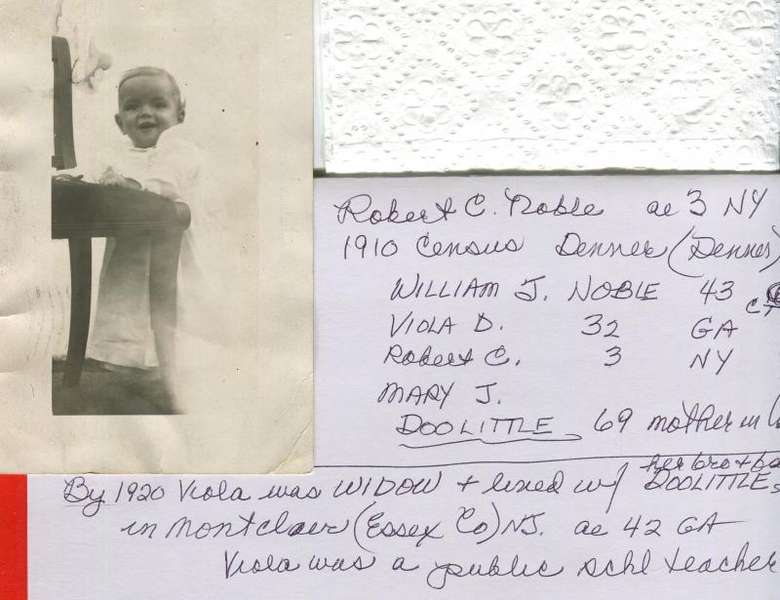 Robert C. Noble ae 3 NY
1910 Census Denner (Denner)
WILLIAM J. NOBLE 43 CT
VIOLA D. 32 GA
Robert C. 3 NY
MARY J.
DOOLITTLE 69 mother in
her bro +
By 1920 Viola was WIDOW + lived w/ DOOLITTLEs
in Montclair (Essex Co) NJ. ae 42 GA
Viola was a public schl teacher